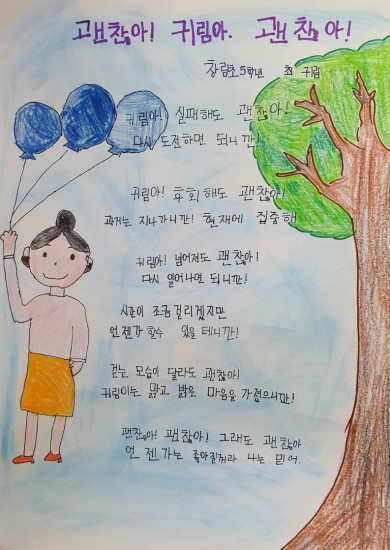 괜찮아! 귀림아. 괜찮아!
창림초 5학년 최 귀림
귀림아! 실패해도 괜찮아!
다시 도전하면 되니깐!
귀림아! 후회해도 괜찮아!
과거는 지나가니깐! 현재에 집중해
귀림아! 넘어져도 괜찮아!
다시 일어나면 되니깐!
시간이 조금 걸리겠지만
언젠가 할수 있을 테니깐!
걷는 모습이 달라도 괜찮아!
귀림이는 맑고 밝은 마음을 가졌으니깐!
괜찮아! 괜찮아! 그래도 괜찮아
언젠가는 좋아질꺼라 나는 믿어.